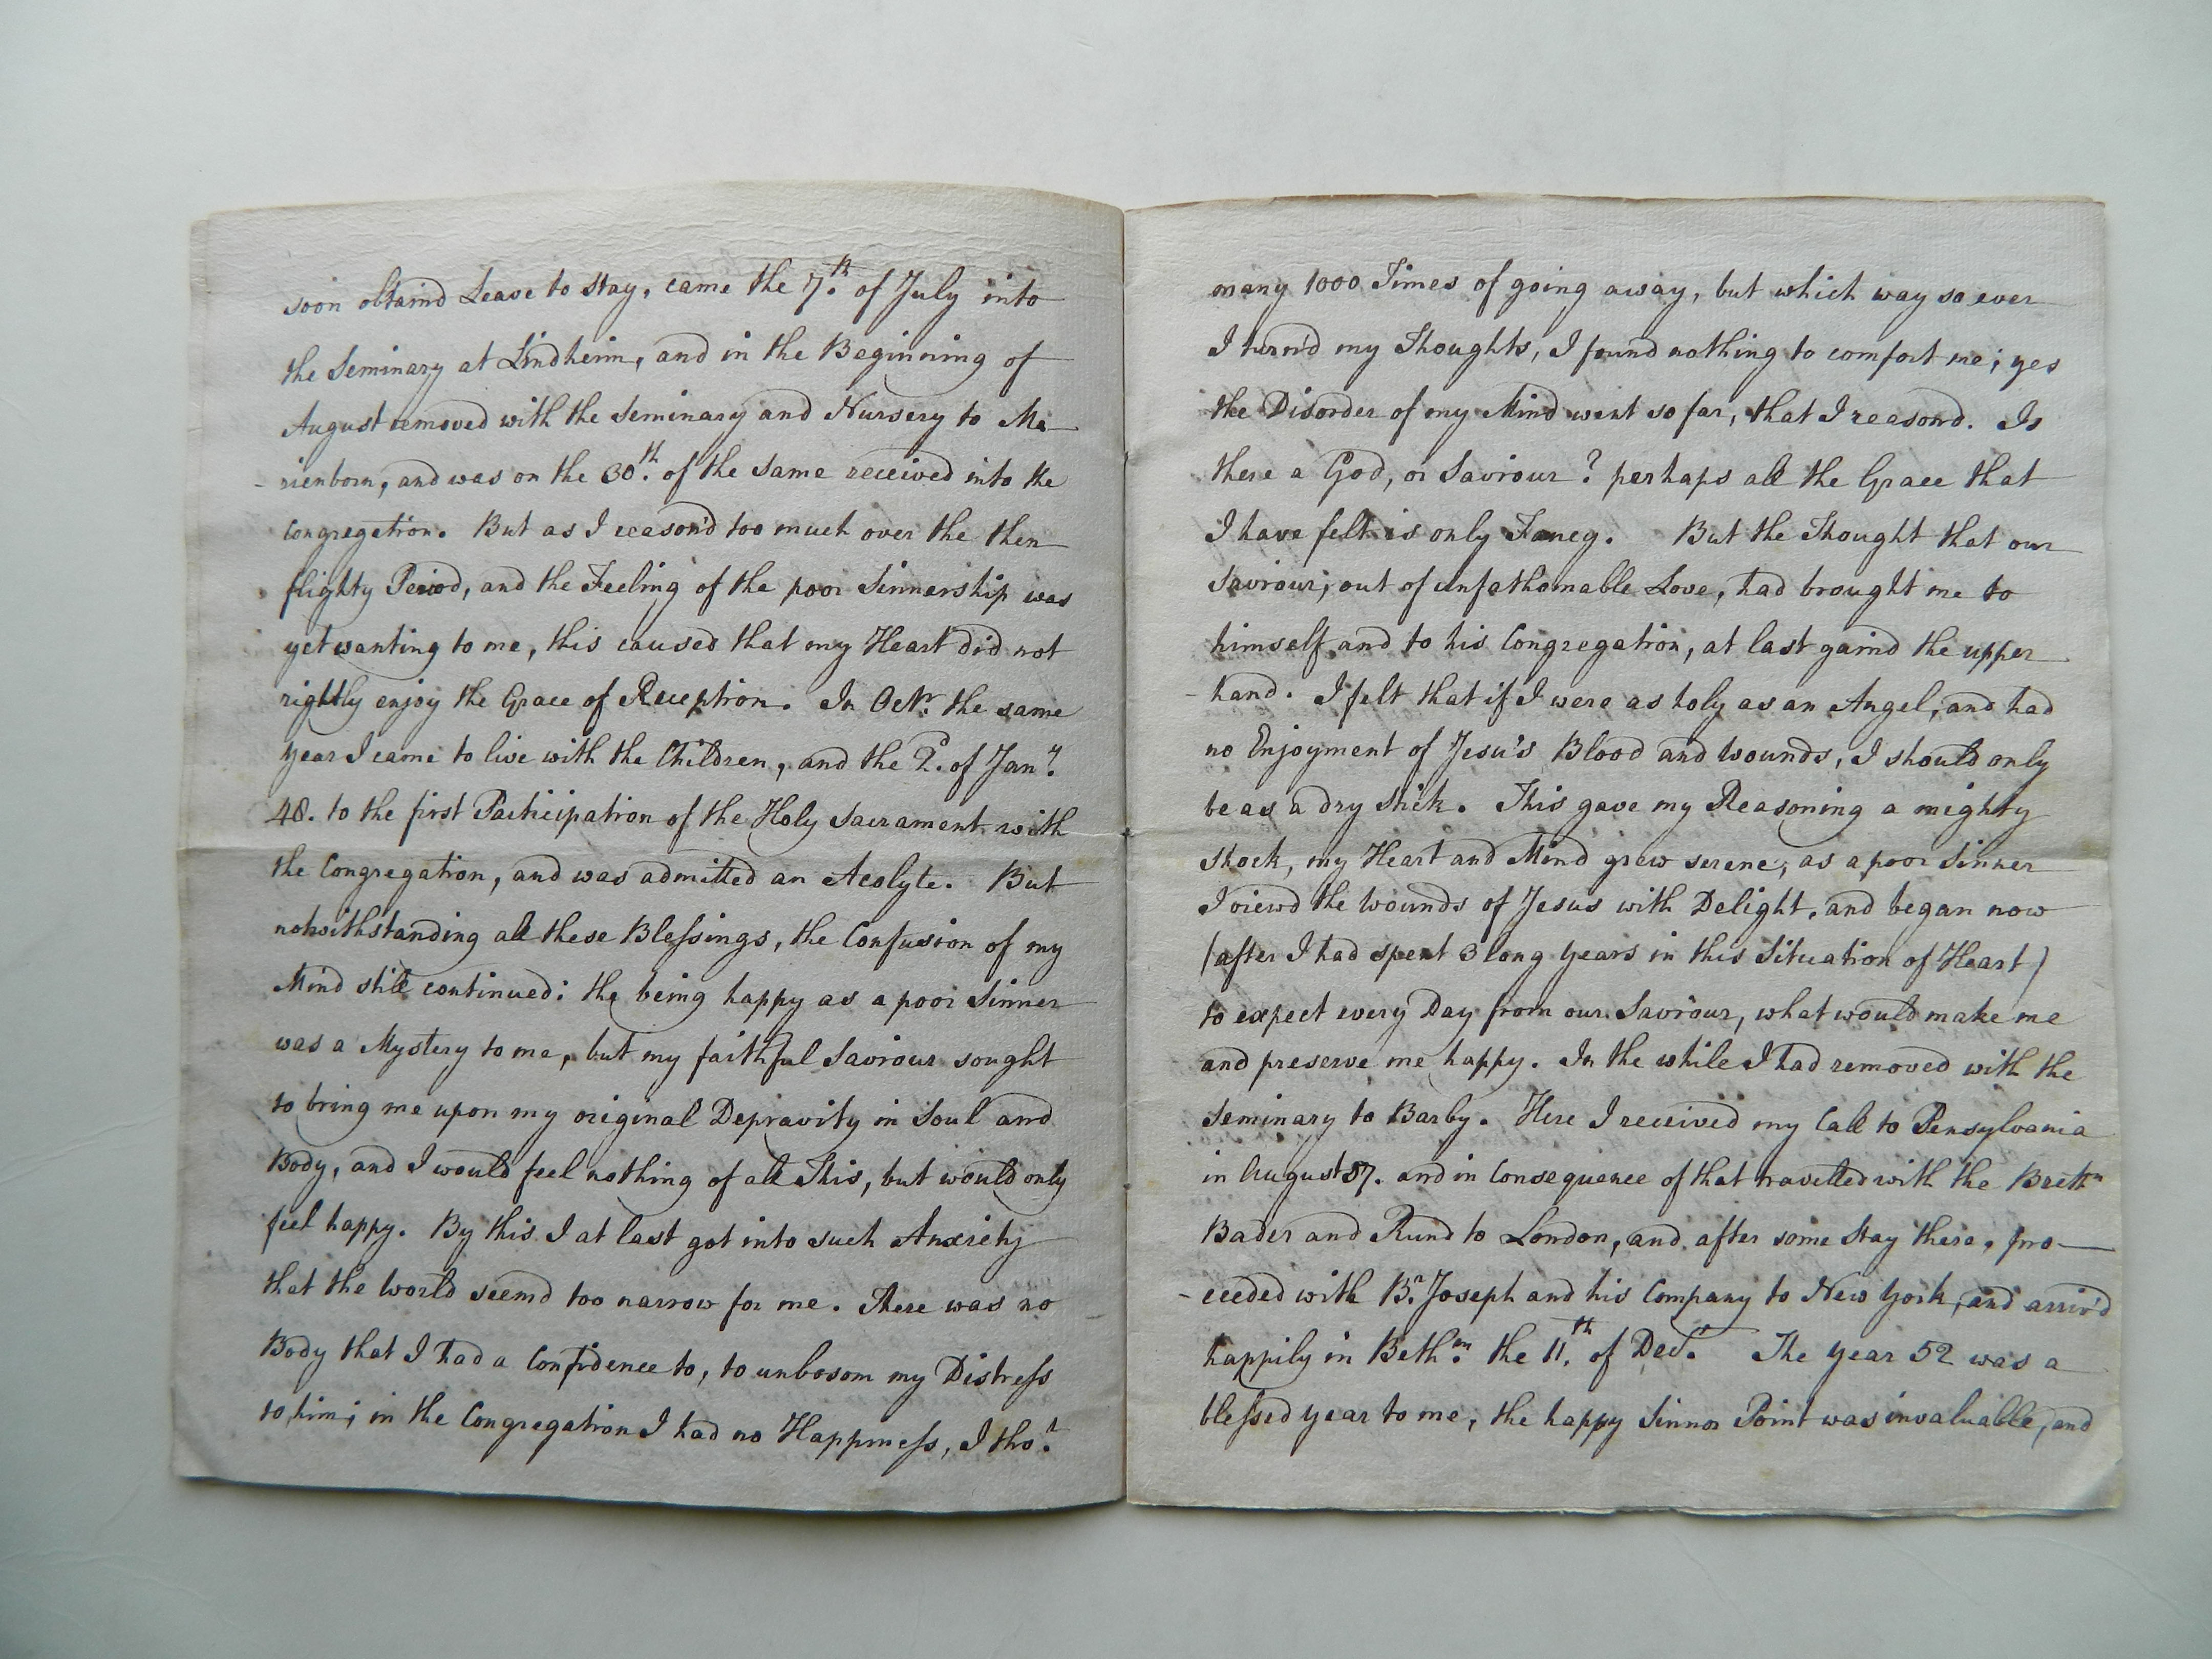 soon obtaind Leave to stay, came the 7.th of July into
the Seminary at Lindheim, and in the Beginning of
August removed with the Seminary and Nursery to Ma-
-rienborn, and was on the 30.th of the same received into the
Congregation. But as I reason'd too much over the then
flighty Period, and the Feeling of the poor Sinnership was
yet wanting to me, this caused that my Heart did not
rightly enjoy the Grace of Reception. In Octr. the same
year I came to live with the Children, and the 2d. of Jany.
48. to the first Participation of the Holy Sacrament with
the Congregation, and was admitted an Acolyte. But
notwithstanding all these Blessings, the Confusion of my
Mind still continued: the being happy as a poor Sinner
was a Mystery to me, but my faithful Saviour sought
to bring me upon my original Depravity in Soul and
Body, and I would feel nothing of all This, but would only
feel happy. By this I at last got into such Anxiety
that the World seemd too narrow for me. There was no
Body that I had a Confidence to, to unbosom my Distress
to him; in the Congregation I had no Happiness, I tho.t
many 1000 Times of going away, but which way so ever
I turn'd my Thoughts, I found nothing to comfort me; yes
the Disorder of my Mind went so far, that I reasond. Is
there a God, or Saviour? perhaps all the Grace that
I have felt is only Fancy. But the Thought that our
Saviour, out of unfathomable Love, had brought me to
himself and to his Congregation, at last gaind the upper
-hand. I felt that if I were as holy as an Angel, and had
no Enjoyment of Jesu's Blood and Wounds, I should only
be as a dry Stick. This gave my Reasoning a mighty
Shock, my Heart and Mind grew serene, as a poor Sinner
I viewd the Wounds of Jesus with Delight, and began now
(after I had spent 3 long years in this Situation of Heart)
to expect every Day from our Saviour, what would make me
and preserve me happy. In the while I had removed with the
Seminary to Barby. Here I received my Call to Pensylvania
in August 57. and in Consequence of that travelled with the Brethn
Bader and Rund to London, and after some Stay there, pro-
-ceeded with Br. Joseph and his Company to New York, and arriv'd
happily in Beth.m the 11.th of Decr. The year 52 was a
blessed year to me, the happy Sinner Point was invaluable, and